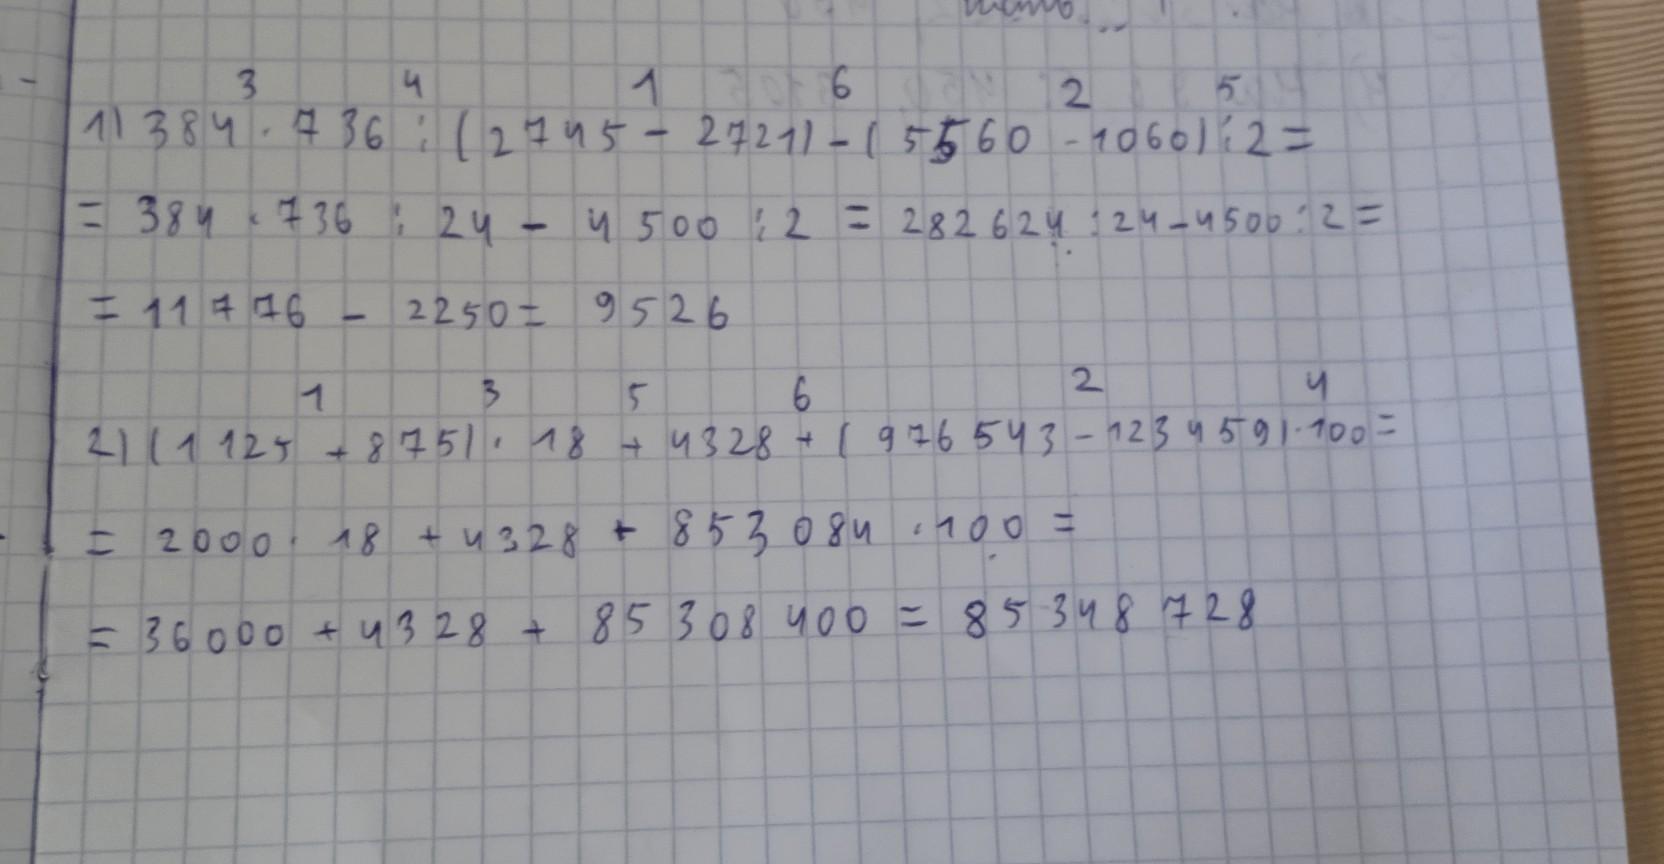 3 4 1 6 2 5
1) 384 · 736 : (2745 - 2721) - (5560 - 1060) : 2 =
= 384 · 736 : 24 - 4500 : 2 = 282624 : 24 - 4500 : 2 =
= 11776 - 2250 = 9526
1 3 5 6 2 4
2) (1125 + 875) · 18 + 4328 + (976543 - 123459) · 100 =
= 2000 · 18 + 4328 + 853084 · 100 =
= 36000 + 4328 + 85308400 = 85348728